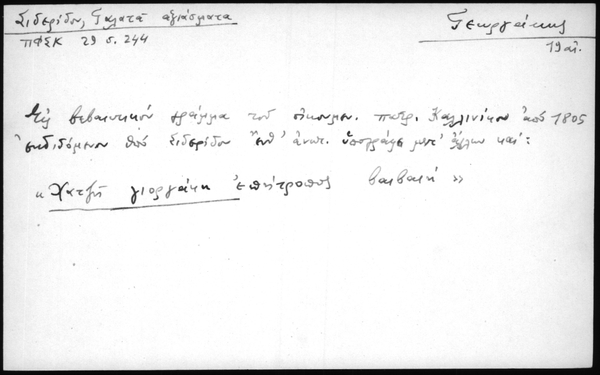 Σιδερίδου, Γαλατᾶ ἁγιάσματα
ΠΦΣΚ 29 σ. 244
Γεωργάκης
19 αἰ.
Εἰς βεβαιωτικόν γράμμα τοῦ οἰκουμεν. πατρ. Καλλινίκου ἀπό 1805
ἐκδιδόμενον ὑπό Σιδερίδου ἔνθ' ἀνωτ. ὑπογράφει μετ' ἄλλων καί:
« Χατζῆ γιοργάκη ἐπήτροπος βεβαιῆ »